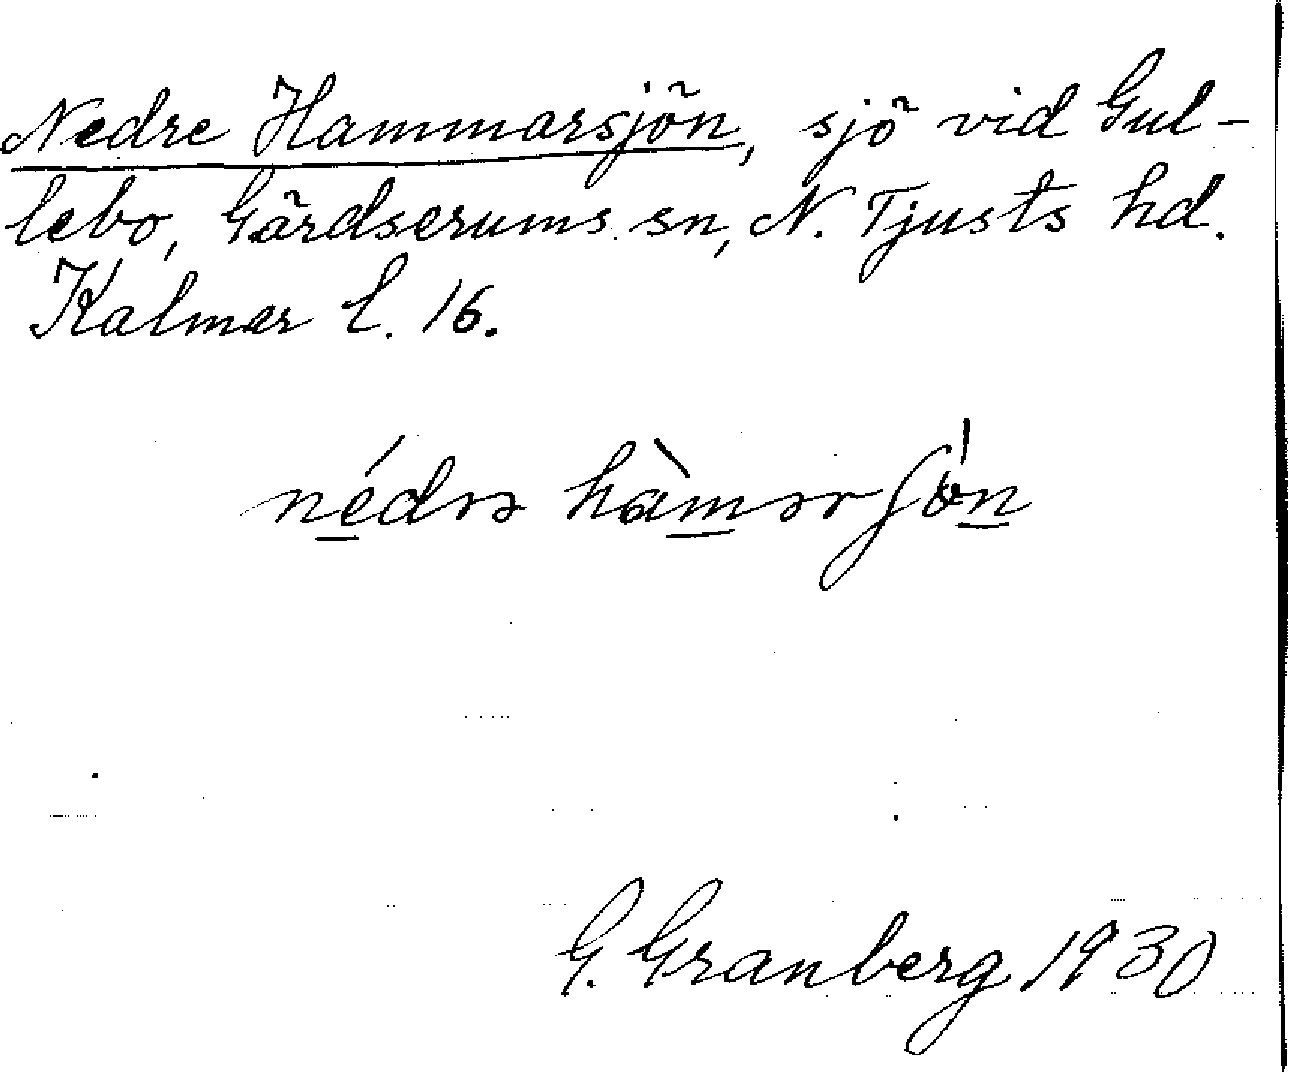 Nedre Hammarsjön, sjö vid Gul-
lebo, Gärdserums sn, N. Tjusts hd.
Kalmar l. 16.
nédrə hàmərʃön
G. Granberg 1930